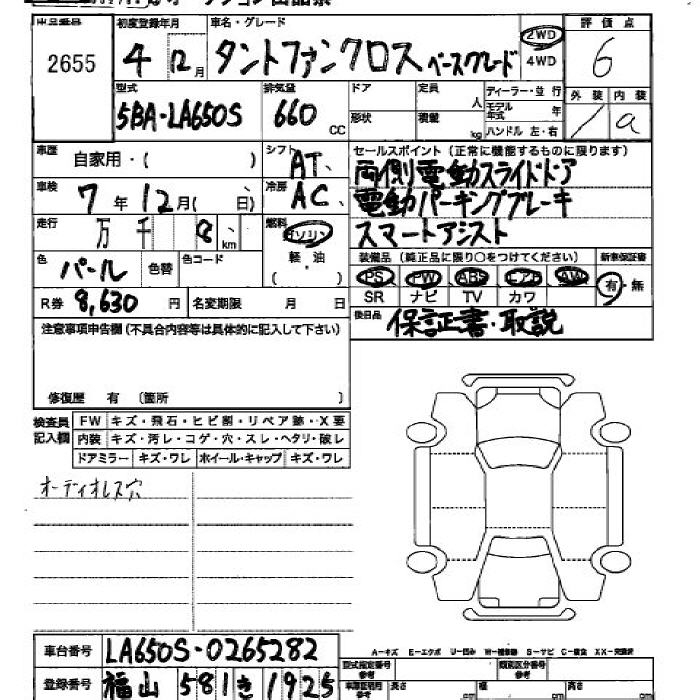 出品番号 初度登録年月 車名・グレード 評価点
2655 4 12月 タントファンクロス ベースグレード 2WD 4WD 6
型式 排気量 ドア 定員 ディーラー・並行 外装 内装
5BA-LA650S 660 CC 形状 人 積載 kg モデル年式 年 ハンドル 左・右 / a
車歴 自家用・( ) シフト AT セールスポイント(正常に機能するものに限ります)
両側電動スライドドア
車検 7年 12月( 日) 冷房 AC 電動パーキングブレーキ
走行 万 千 8 km 燃料 ガソリン 軽・油 ( ) スマートアシスト
色 パール 色替 色コード 装備品(純正品に限り○をつけてください) 新車保証書
PS PW ABS エアB AW 有・無
R券 8,630円 名変期限 月 日 SR ナビ TV カワ
注意事項申告欄(不具合内容等は具体的に記入して下さい) 後日品 保証書・取説
修復歴 有 (箇所 )
検査員記入欄 FW キズ・飛石・ヒビ割・リペア跡・X要
内装 キズ・汚レ・コゲ・穴・スレ・ヘタリ・破レ
ドアミラー キズ・ワレ ホイール・キャップ キズ・ワレ
オーディオレス穴
車台番号 LA650S-0265282 A-キズ E-エクボ U-凹み S-サビ C-腐食
登録番号 福山 581 き 1925 型式指定番号 参考 類別区分番号 参考
長さ 幅 高さ